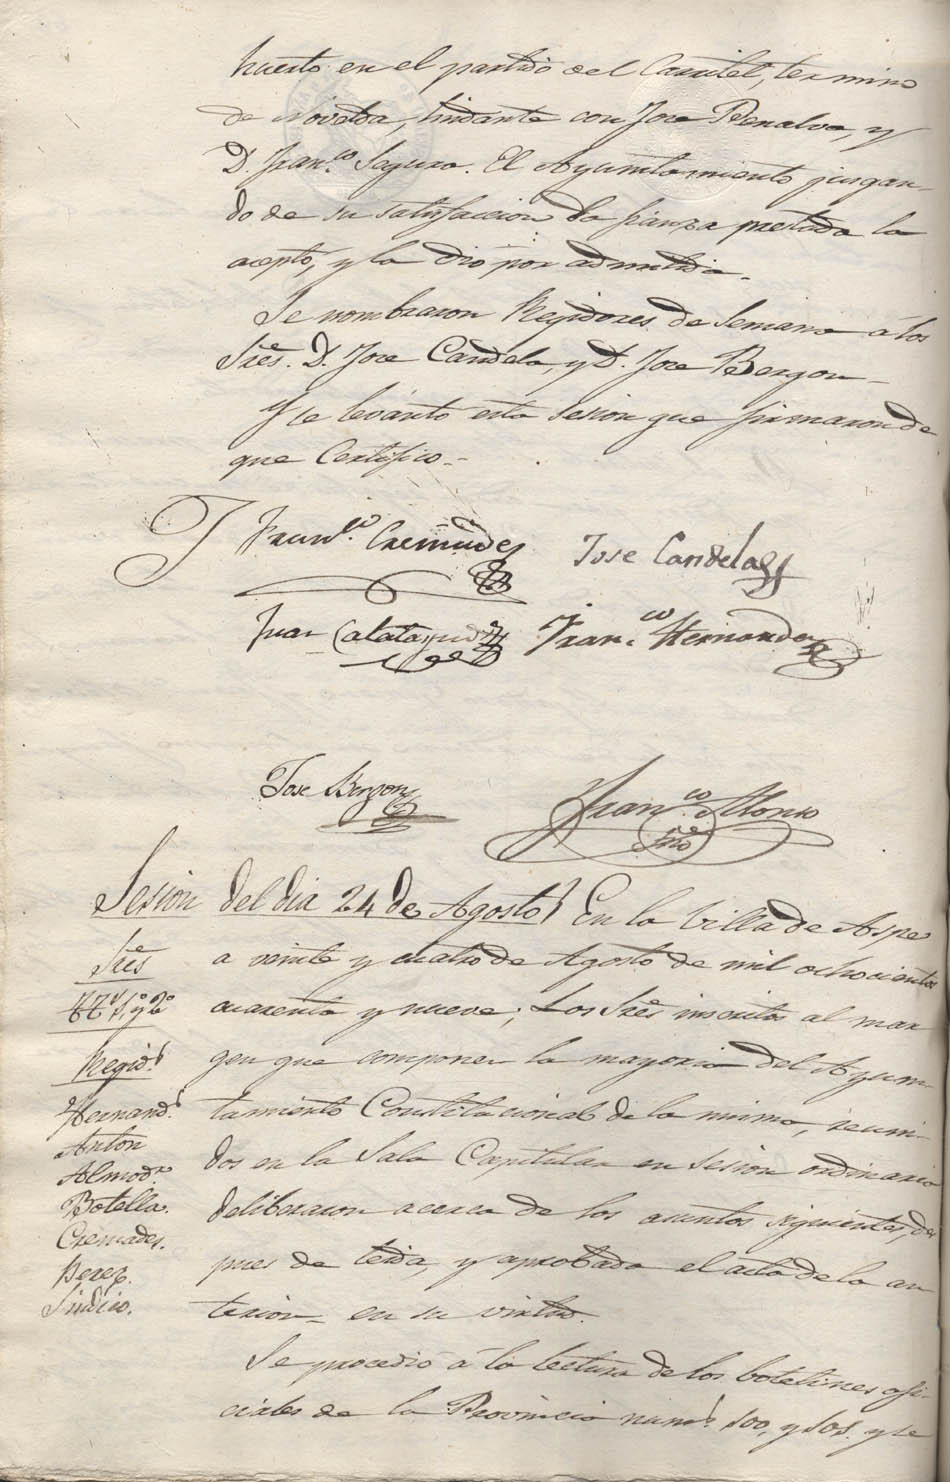 huerto en el partido del Carritel, termino
de Novelda, lindante con Jose Penalva, y
D. Fran.co Segura. El Ayuntamiento juzgan-
do de su satisfaccion la fianza prestada la
acepto, y la dio por admitida.
Se nombraron Regidores de Semana á los
Sres. D. Jose Candela, y D. Jose Bergon
Y se levánto esta sesion que firmaron de
que Certifico.
Fran.co Cremades
Jose Candela
Juan Calatayud
Fran.co Hernandez
Jose Bergon
Fran.co Alonso
Srio
Sesion del dia 24 de Agosto
Sres
TT. 1.o y 2.o
Regid.s
Hernand.s
Anton
Almod.r
Botella.
Cremades.
Perez.
Sindico.
En la Villa de Aspe
a veinte y cuatro de Agosto de mil ochocientos
cuarenta y nueve; Los Sres inscritos al mar
gen que componen la mayoria del Ayun-
tamiento Constitucional de la misma, reuni-
dos en la Sala Capitular en sesion ordinaria
deliberaron acerca de los asuntos siguientes, des
pues de leida, y aprobada el acta de la an
terior- en su virtud.
Se procedio á la lectura de los boletines ofi-
ciales de la Provincia num.s 100, y 101. y se